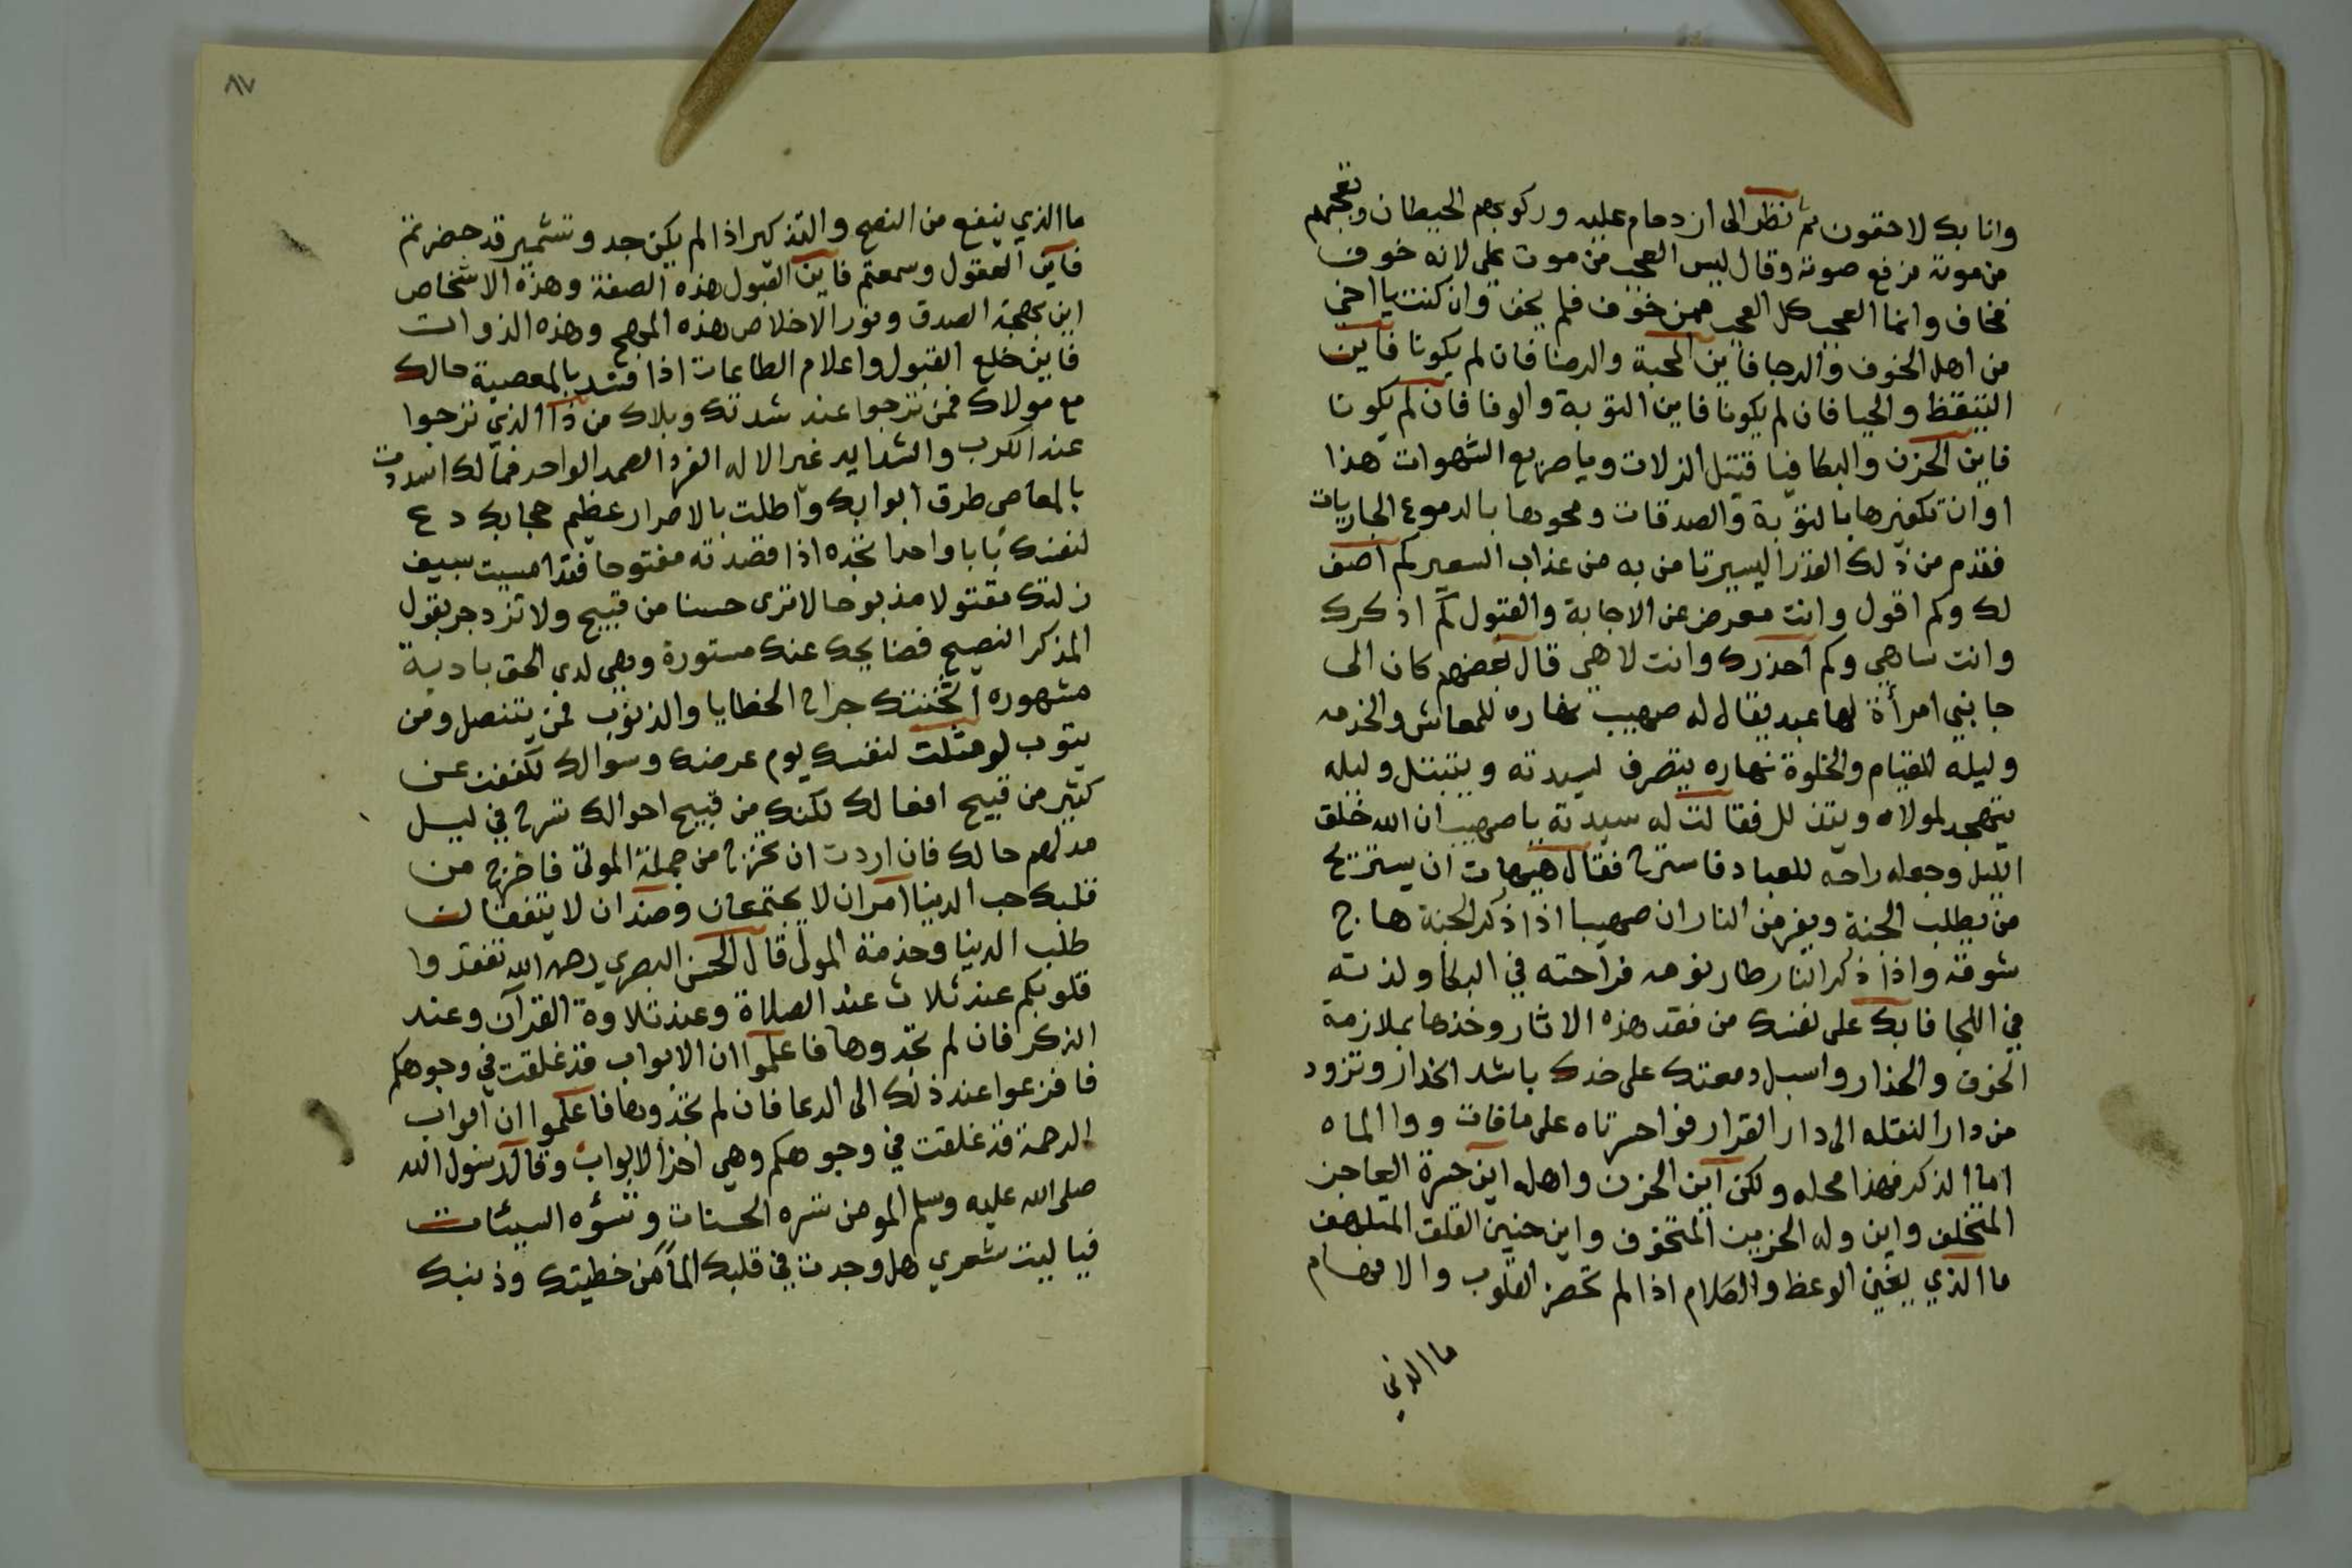 وانا بك لاحقون ثم نظر الى ازدحام عليه وركوبهم الحيطان وتعجبهم
من موته فرفع صوته وقال ليس العجب من موت علي لانه خوف
فخاف وانما العجب كل العجب ممن خوف فلم يخف وان كنت يا اخي
من اهل الخوف والرجا فاين المحبة والرضا فان لم يكونا فاين
التيقظ والحيا فان لم يكونا فاين التوبة والوفا فان لم يكونا
فاين الحزن والبكا فيا قتيل الزلات ويا صريع الشهوات هذا
اوان تكفيرها بالتوبة والصدقات ومحوها بالدموع الجاريات
فقدم من ذلك القدر اليسير تامن به من عذاب السعير كم اصف
لك وكم اقول وانت معرض عن الاجابة والقبول كم اذكرك
وانت ساهي وكم احذرك وانت لاهي قال بعضهم كان الى
جانبي امرأة لها عبد يقال له صهيب نهاره للمعاش والخدمه
وليله للقيام والخلوة نهاره يتصرف لسيدته ويتبتل وليله
يتهجد لمولاه ويتذلل فقالت له سيدته يا صهيب ان الله خلق
الليل وجعله راحه للعباد فاسترح فقال هيهات ان يستريح
من يطلب الجنة ويفر من النار ان صهيبا اذا ذكر الجنة هاج
شوقه واذا ذكر النار طار نومه فراحته في البكا ولذته
في اللجا فابك على نفسك من فقد هذه الاثار وخذها بملازمة
الخوف والحذار واسبل دمعتك على خدك باشد انحدار وتزود
من دار النقله الى دار القرار فواحسرتاه على مافات ووا الماه
اما الذكر فهذا محله ولكن اين الحزن واهله اين حسرة العاجز
المتخلف واين وله الحزين المتخوف واين حنين القلق المتلهف
ما الذي يغني الوعظ والكلام اذا لم تحضر القلوب والافهام
ما الذي
٨٧
ما الذي ينفع من النصح والتذكير اذا لم يكن جد وتشمير قد حضرتم
فاين العقول وسمعتم فاين القبول هذه الصفة وهذه الاشخاص
اين بهجة الصدق ونور الاخلاص هذه المهج وهذه الذوات
فاين خلع القبول واعلام الطاعات اذا فسد بالمعصية حالك
مع مولاك فمن ترجوا عند شدتك وبلاك من ذا الذي ترجوا
عند الكرب والشدايد غير الاله الفرد الصمد الواحد فمالك اسددت
بالمعاصي طرق ابوابك واطلت بالاصرار عظيم حجابك دع
لنفسك بابا واحدا تجده اذا قصدته مفتوحا فقد امسيت بسيف
زلتك مقتولا مذبوحا لا ترى حسنا من قبيح ولا تزدجر بقول
المذكر النصيح فضايحك عندك مستورة وهي لدي الحق بادية
مشهوره اثخنتك جراح الخطايا والذنوب فمن يتنصل ومن
يتوب لو مثلت لنفسك يوم عرضك وسوالك لكففت عن
كثير من قبيح افعالك لكنك من قبيح احوالك تسرح في ليل
مدلهم حالك فان اردت ان تخرج من جملة الموتى فاخرج من
قلبك حب الدنيا امران لا يجتمعان وضدان لا يتفقان
طلب الدنيا وخدمة المولى قال الحسن البصري رحمه الله تفقدوا
قلوبكم عند ثلاث عند الصلاة وعند تلاوة القرآن وعند
الذكر فان لم تجدوها فاعلموا ان الابواب قد غلقت في وجوهكم
فافزعوا عند ذلك الى الدعا فان لم تجدوها فاعلموا ان ابواب
الرحمة قد غلقت في وجوهكم وهي اخر الابواب وقال رسول الله
صلى الله عليه وسلم المومن تسره الحسنات وتسؤه السيئات
فيا ليت شعري هل وجدت في قلبك الما من خطيتك وذنبك